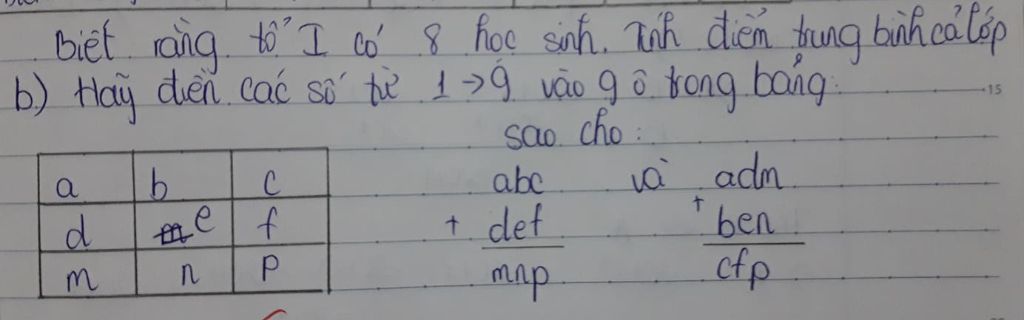 Biết rằng tổ I có 8 học sinh. Tính điểm trung bình cả lớp
b.) Hãy điền các số từ 1 → 9 vào 9 ô trong bảng
sao cho:
a b c
d e f
m n p
abc và adm
+ def + ben
mnp cfp